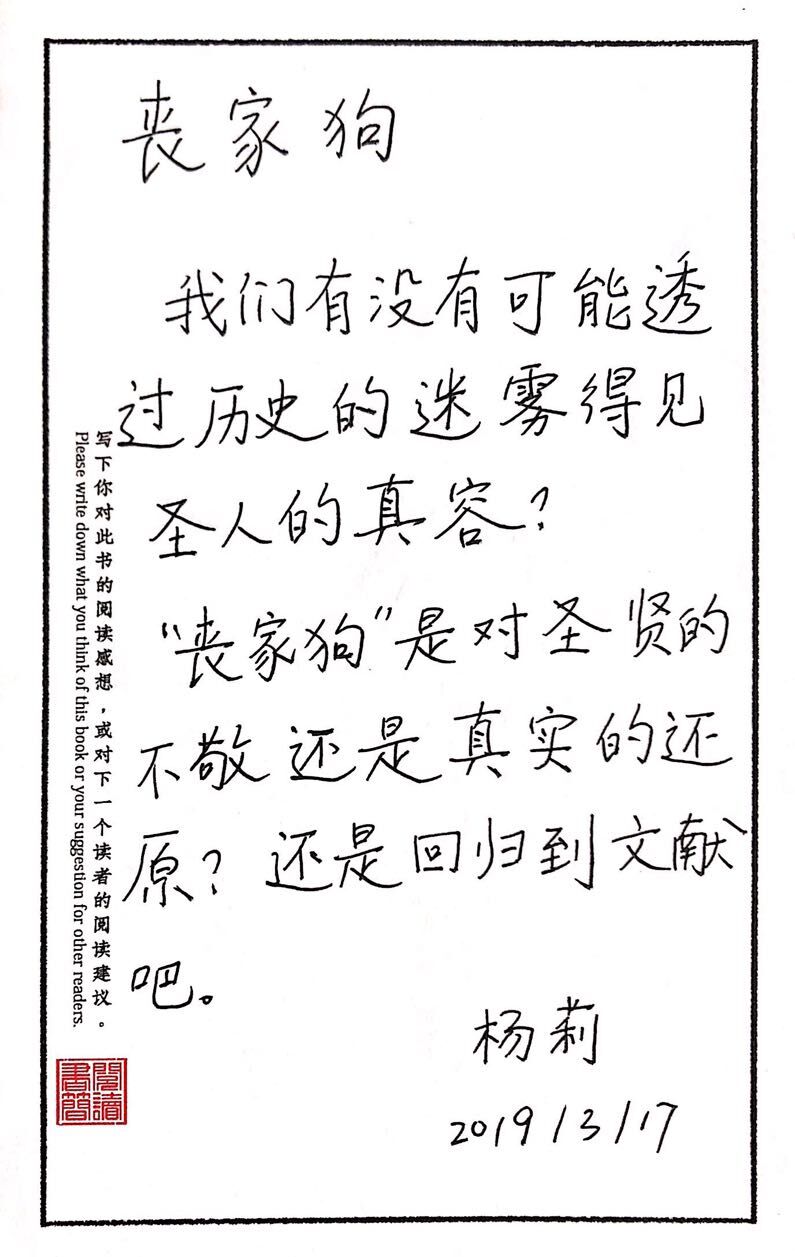 丧家狗
我们有没有可能透
过历史的迷雾得见
圣人的真容?
"丧家狗"是对圣贤的
不敬还是真实的还
原?还是回归到文献
吧。
杨莉
2019/3/17
写下你对此书的阅读感想,或对下一个读者的阅读建议。
Please write down what you think of this book or your suggestion for other readers.
閱讀
書簡